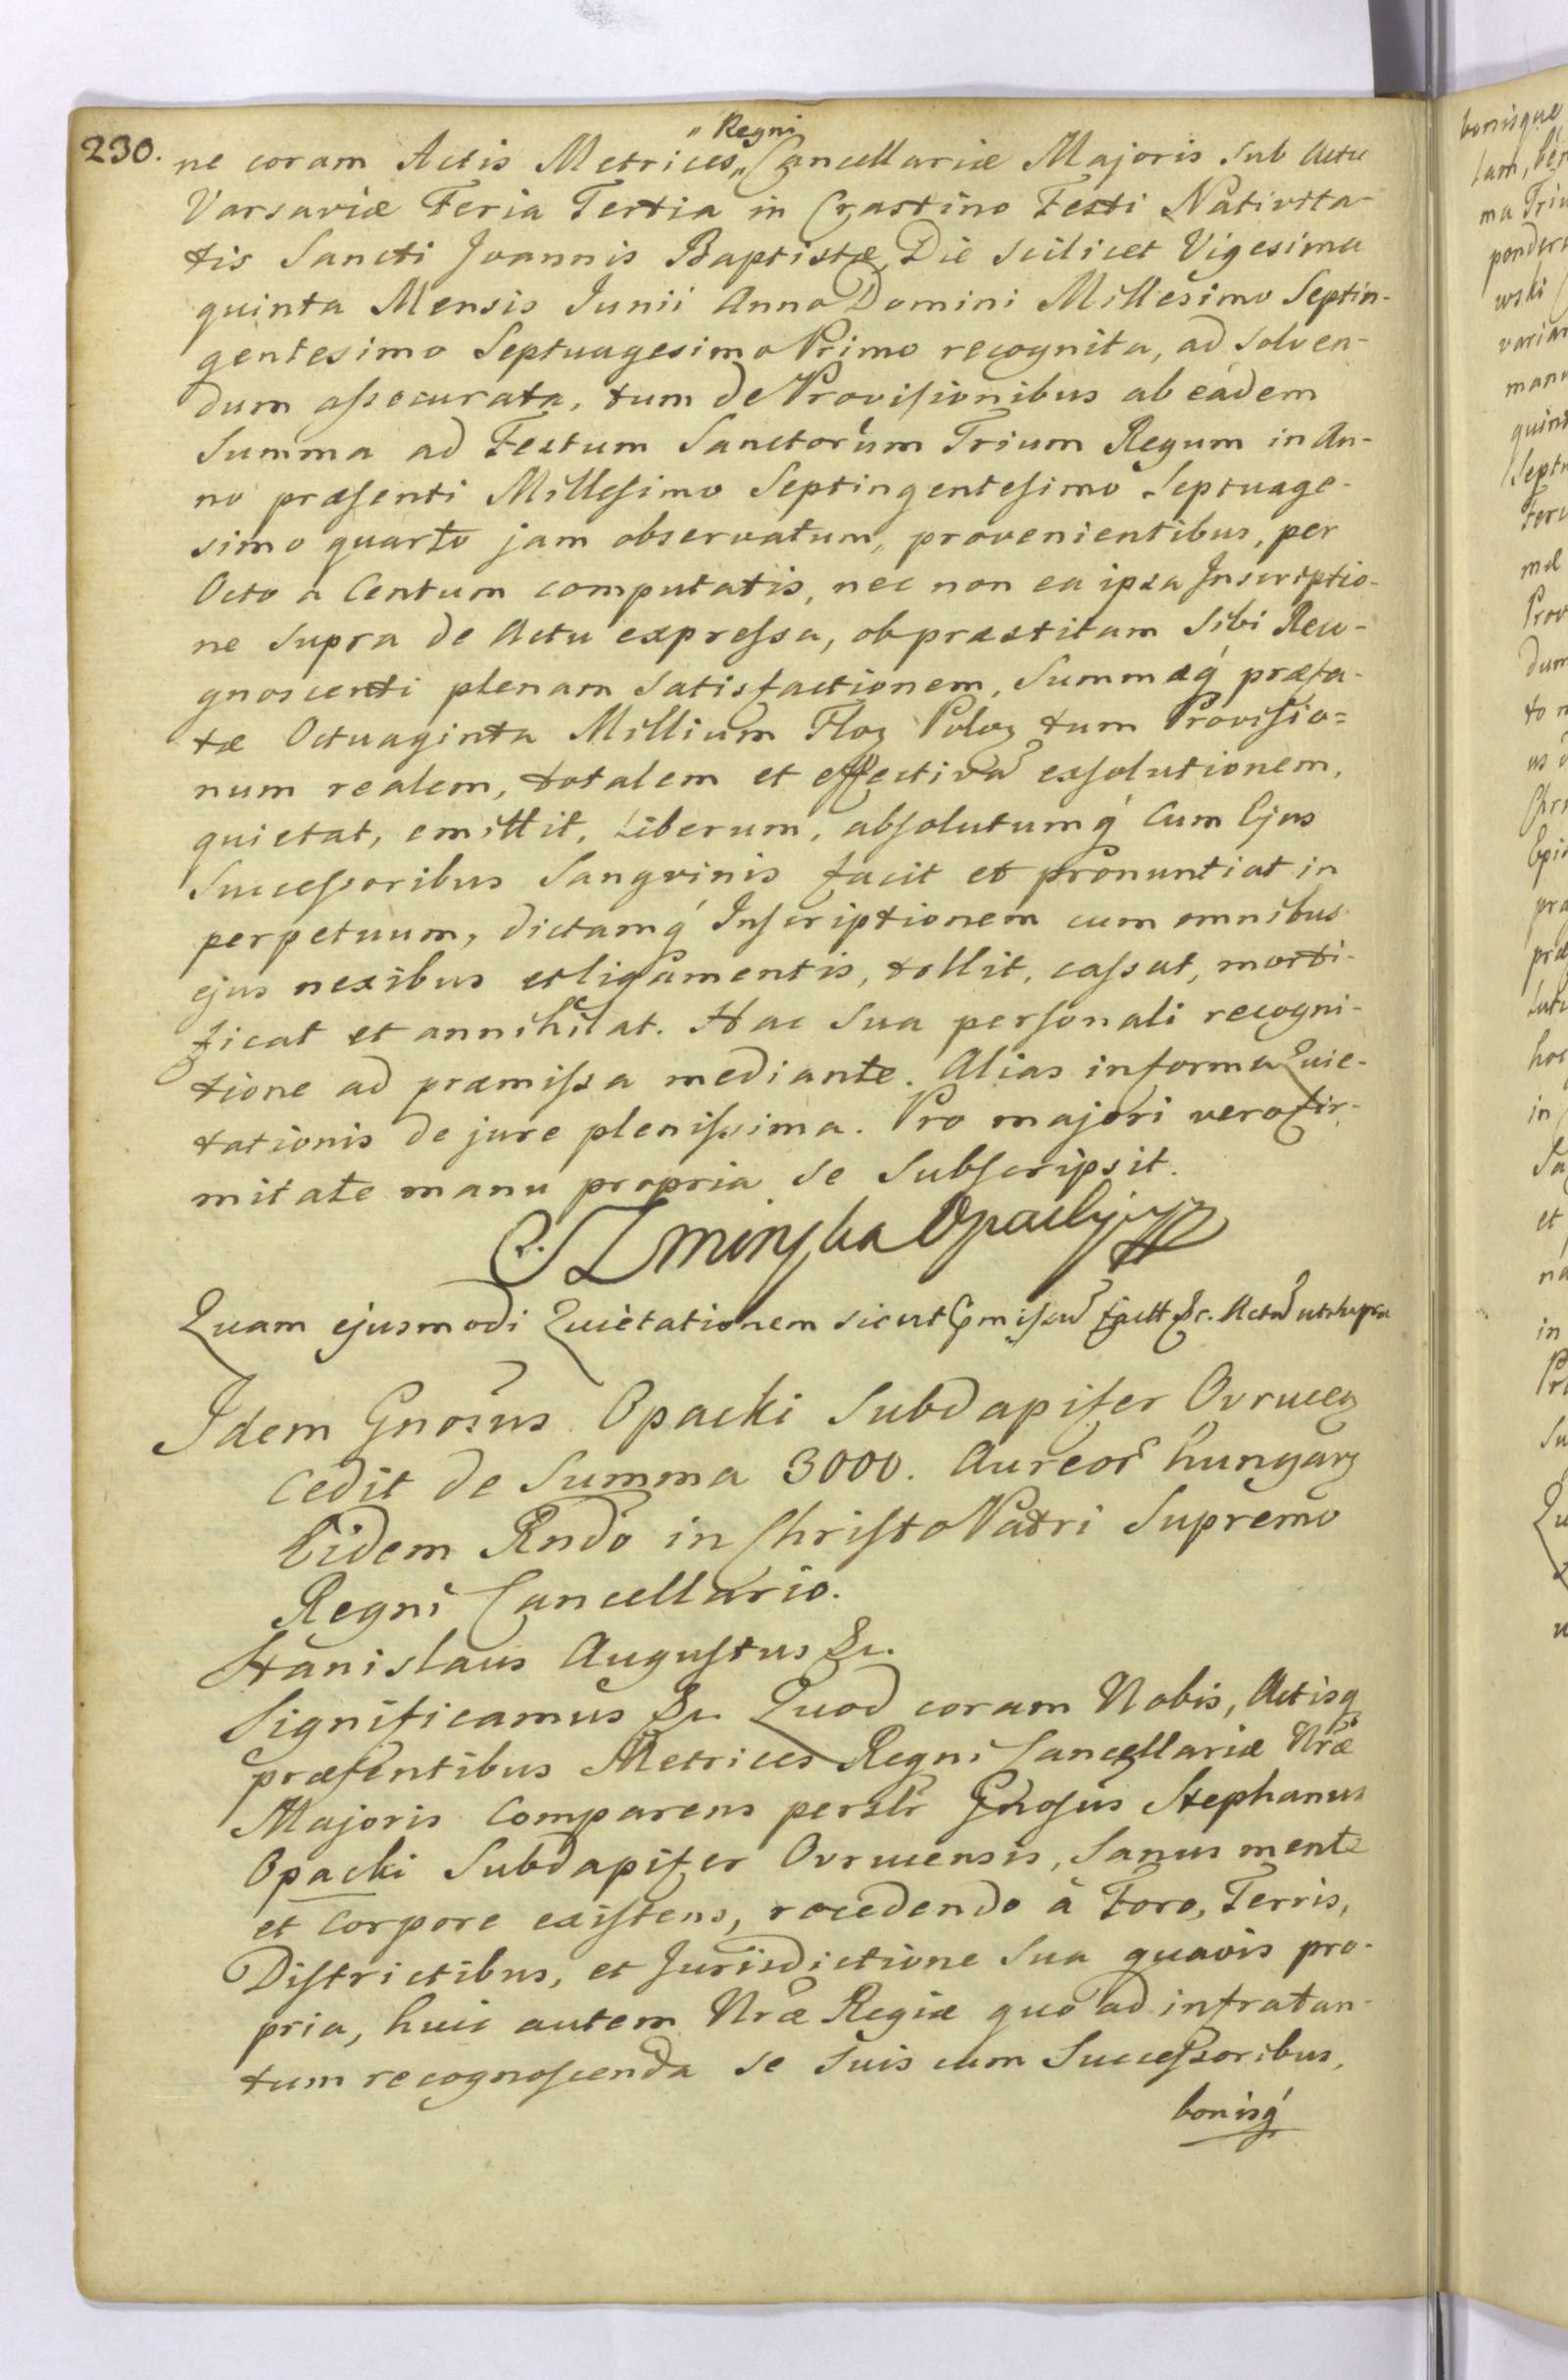 230.
" Regni
ne coram Actis Metrices,, Cancellariæ Majoris sub Actu
Varsaviæ Feria Tertia in Crastino Festi Nativita-
tis Sancti Joannis Baptistæ, Die scilicet Vigesima
quinta Mensis Junii Anno Domini Millesimo Septin-
gentesimo Septuagesimo Primo recognita, ad solven-
dum assecurata, tum de Provisionibus ab eâdem
Summa ad Festum Sanctorum Trium Regum in An-
no præsenti Millesimo Septingentesimo Septuage-
simo quarto jam observatum, provenientibus, per
Octo a Centum computatis, nec non ea ipsa Inscriptio-
ne supra de Actu expressa, ob præstitam sibi Reco-
gnoscenti plenam satisfactionem, Summæq́ præfa-
tæ Octuaginta Millium Floꝛ Poloꝛ tum Provisio=
num realem, totalem et effectivã exsolutionem,
quietat, emittit, Liberum, absolutumq́ cum Ejus
Successoribus Sangvinis facit et pronuntiat in
perpetuum, dictamq́ Inscriptionem cum omnibus
ejus nexibus et ligamentis, tollit, cassat, morti-
ficat et annihilat. Hac sua personali recogni-
tione ad præmissa mediante. Alias in forma Quie-
tationis de jure plenissima. Pro majori vero fir-
mitate manu propria se subscripsit.
Opacki
Quam ejusmodi Quietationem sicut &c. Actũ ut supra
Idem Gnosus Opacki Subdapifer Ovruceꝛ
cedit de Summa 3000. Aureor̃ hungarꝛ
Eidem Rndo in Christo Patri Supremo
Regni Cancellario.
Stanislaus Augustus &c.
Significamus &c. Quod coram Nobis, Actisq
præsentibus Metrices Regni Cancellariæ Nræ
Majoris Comparens perslr Gnosus Stephanus
Opacki Subdapifer Ovrucensis, sanus mente
et corpore existens, recedendo à Foro, Terris,
Districtibus, et Jurisdictione sua quavis pro-
pria, huic autem Nræ Regiæ quo ad infratan-
tum recognoscenda se suis cum Successoribus,
bonisq́
bonisque
ma Triu
ponder
wski
manu
quint
Prov
dum
hoc
in
et
in